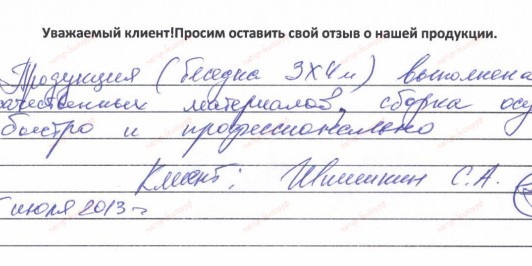 Уважаемый клиент!Просим оставить свой отзыв о нашей продукции.
Продукция (беседка 3х4м) выполнена
ачественных материалов, сборка осу
быстро и профессионально
Клиент: С.А.
июля 2013г